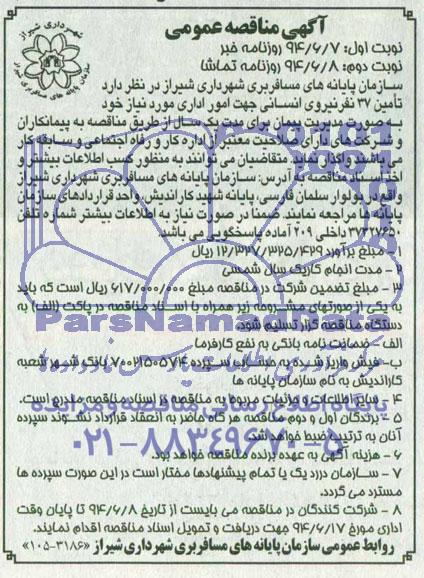 آگهی مناقصه عمومی
شهرداری شیراز
سازمان پایانه های مسافربری شیراز
نوبت اول: ۹۴/۶/۷ روزنامه خبر
نوبت دوم: ۹۴/۶/۸ روزنامه تماشا
سازمان پایانه های مسافربری شهرداری شیراز در نظر دارد
تأمین ۳۷ نفر نیروی انسانی جهت امور اداری مورد نیاز خود
بصورت مدیریت پیمان برای مدت یکسال از طریق مناقصه به پیمانکاران
و شرکت های دارای صلاحیت معتبر از اداره کار و رفاه اجتماعی و سابقه کار
می باشند واگذار نماید. متقاضیان می توانند به منظور کسب اطلاعات بیشتر و
اخذ اسناد مناقصه به آدرس: سازمان پایانه های مسافربری شهرداری شیراز
واقع در بولوار سلمان فارسی، پایانه شهید کاراندیش، واحد قراردادهای سازمان
پایانه ها مراجعه نمایند. ضمناً در صورت نیاز به اطلاعات بیشتر شماره تلفن
۳۷۳۲۷۶۵۰ داخلی ۲۰۹ آماده پاسخگویی می باشد.
۱- مبلغ برآورد ۱۲/۳۲۷/۳۲۵/۴۲۹ ریال
۲- مدت انجام کار یک سال شمسی
۳- مبلغ تضمین شرکت در مناقصه مبلغ ۶۱۷/۰۰۰/۰۰۰ ریال است که باید
به یکی از صورتهای مشروحه زیر همراه با اسناد مناقصه در پاکت (الف) به
دستگاه مناقصه گزار تسلیم شود:
الف- ضمانت نامه بانکی به نفع کارفرما
ب- فیش واریز شده به حساب سپرده ۷۰۰۲۱۵۰۰۵۷۴ بانک شهر شعبه
کاراندیش به نام سازمان پایانه ها
۴- سایر اطلاعات و جزئیات مربوط به مناقصه در اسناد مناقصه مندرج است.
۵- برندگان اول و دوم مناقصه هر گاه حاضر به انعقاد قرارداد نشوند سپرده
آنان به ترتیب ضبط خواهد شد.
۶- هزینه آگهی به عهده برنده مناقصه خواهد بود.
۷- سازمان در رد یک یا تمام پیشنهادها مختار است در این صورت سپرده ها
مسترد می گردد.
۸- شرکت کنندگان در مناقصه می بایست از تاریخ ۹۴/۶/۸ تا پایان وقت
اداری مورخ ۹۴/۶/۱۷ جهت دریافت و تحویل اسناد مناقصه اقدام نمایند.
روابط عمومی سازمان پایانه های مسافربری شهرداری شیراز «۳۱۸۶-۱۰۵»
ParsNamadData
پایگاه اطلاع رسانی مناقصه و مزایده
۰۲۱-۸۸۳۴۹۶۷۰-۵